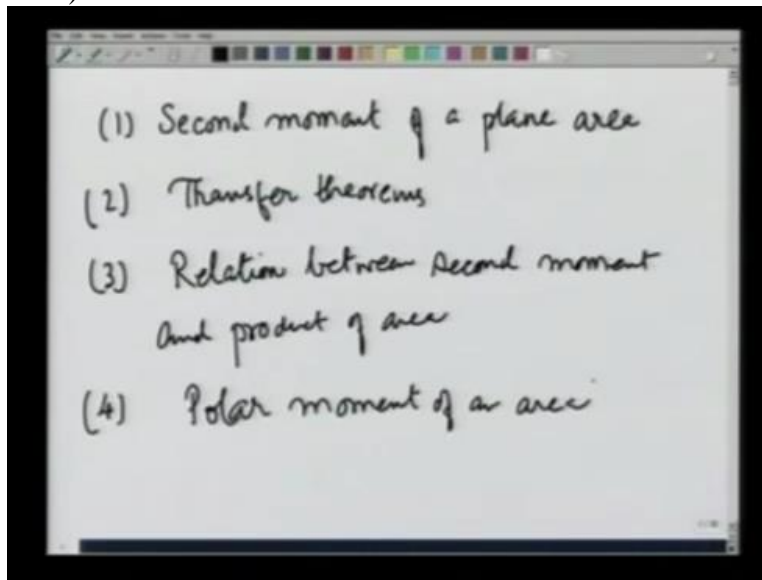 (1) Second moment of a plane area
(2) Transfer theorems
(3) Relation between second moment
and product of area
(4) Polar moment of an area